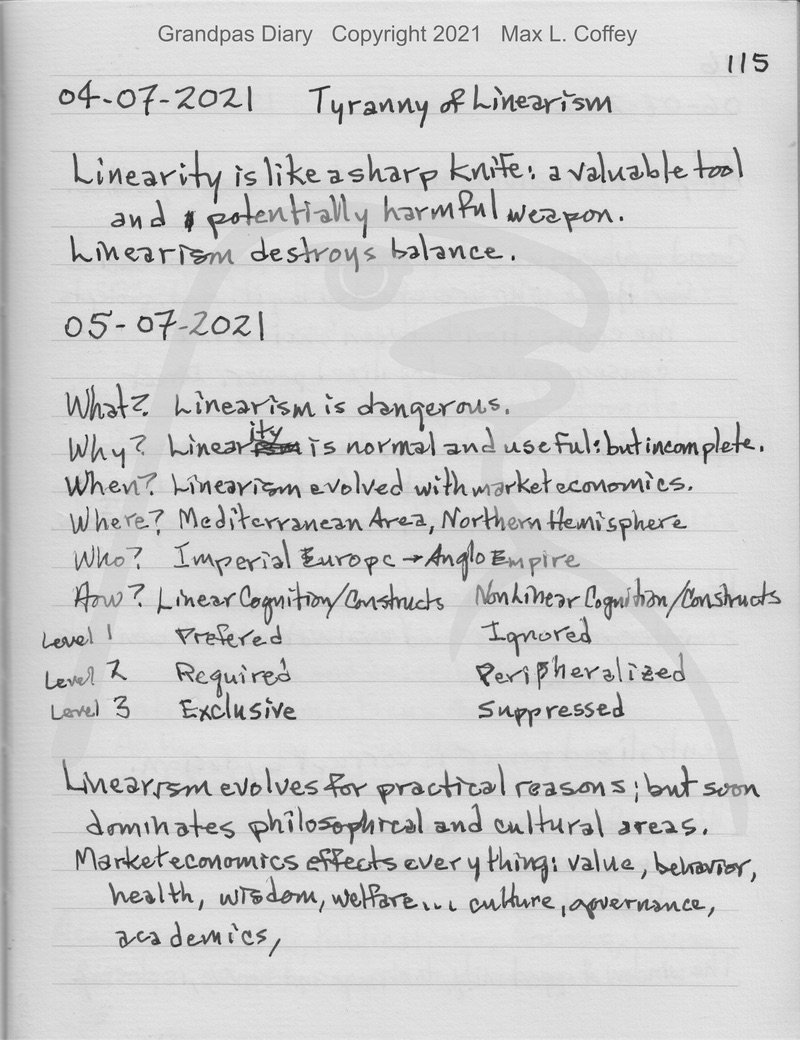 Grandpas Diary Copyright 2021 Max L. Coffey
115
04-07-2021 Tyranny of Linearism
Linearity is like a sharp knife: a valuable tool
and potentially harmful weapon.
Linearism destroys balance.
05-07-2021
What? Linearism is dangerous.
Why? Linearity is normal and useful: but incomplete.
When? Linearism evolved with market economics.
Where? Mediterranean Area, Northern Hemisphere
Who? Imperial Europe → Anglo Empire
How? Linear Cognition/Constructs NonLinear Cognition/Constructs
Level 1 Prefered Ignored
Level 2 Required Peripheralized
Level 3 Exclusive Suppressed
Linearism evolves for practical reasons; but soon
dominates philosophical and cultural areas.
Market economics effects everything: value, behavior,
health, wisdom, welfare... culture, governance,
academics,